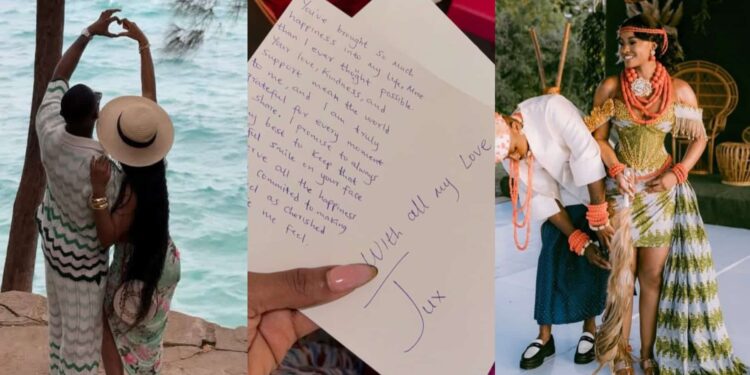 You've brought so much
happiness into my life, More
than I ever thought possible
Your love, kindness, and
support mean the world
to me, and I am truly
grateful for every moment
share. I promise to always
my best to keep that
smile on your face
all the happiness
committed to making
as cherished
me feel.
With all my Love
Jux